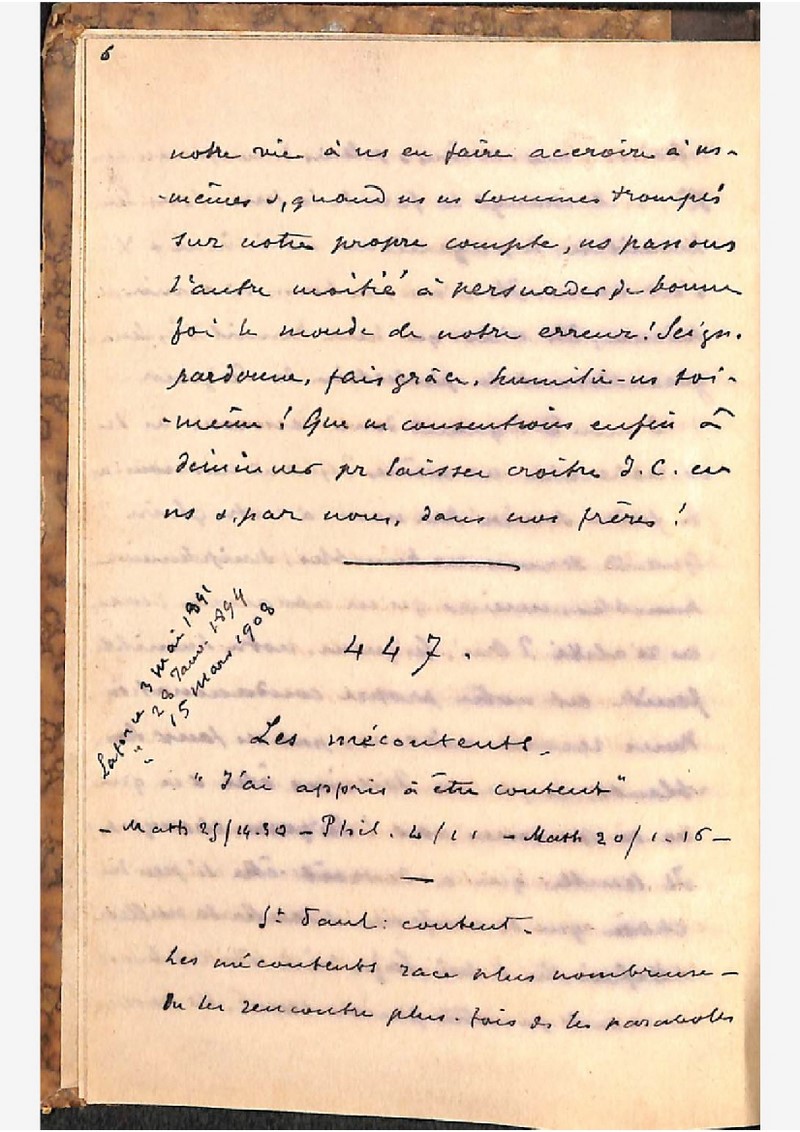 6
notre vie à ns en faire accroire à ns-
-mêmes &, quand ns ns sommes trompés
sur notre propre compte, ns passons
l'autre moitié à persuader de bonne
foi le monde de notre erreur! Seign.
pardonne, fais grâce, humilie-ns toi-
-même! Que ns consentions enfin à
diminuer pr laisser croître J.C. en
ns &, par nous, dans nos frères!
Laforce 3 Mai 1891
" 28 Janv. 1894
" 15 Mars 1908
447.
Les mécontents.
"J'ai appris à être content"
- Math 25/14.30 - Phil. 4/11 - Math 20/1.16 -
St Paul: content.
Les mécontents race plus nombreuse -
On les rencontre plus. fois ds les paraboles